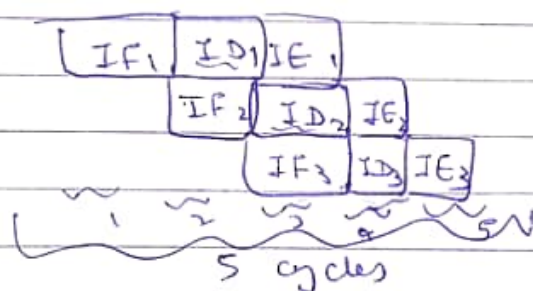 IF₁ ID₁ IE₁
IF₂ ID₂ IE₂
IF₃ ID₃ IE₃
1 2 3 4 5
5 cycles